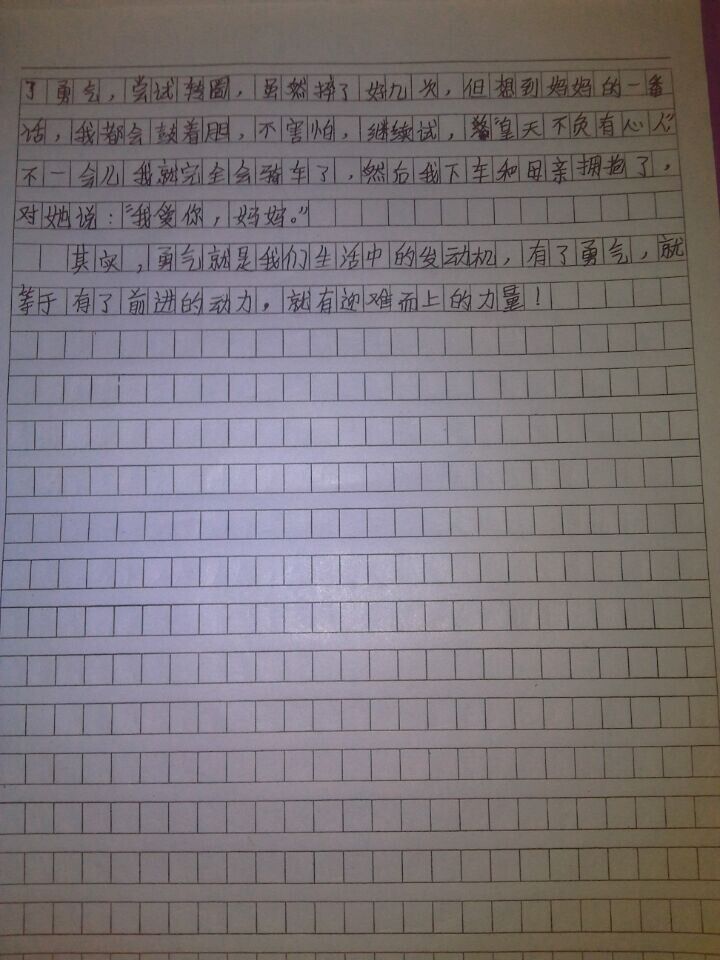 了勇气，尝试转圈，虽然摔了好几次，但想到妈妈的一番
话，我都会鼓着胆，不害怕，继续试，“皇天不负有心人”
不一会儿我就完全会骑车了，然后我下车和母亲拥抱了，
对她说：“我爱你，妈妈。”
其实，勇气就是我们生活中的发动机，有了勇气，就
等于有了前进的动力，就有迎难而上的力量！